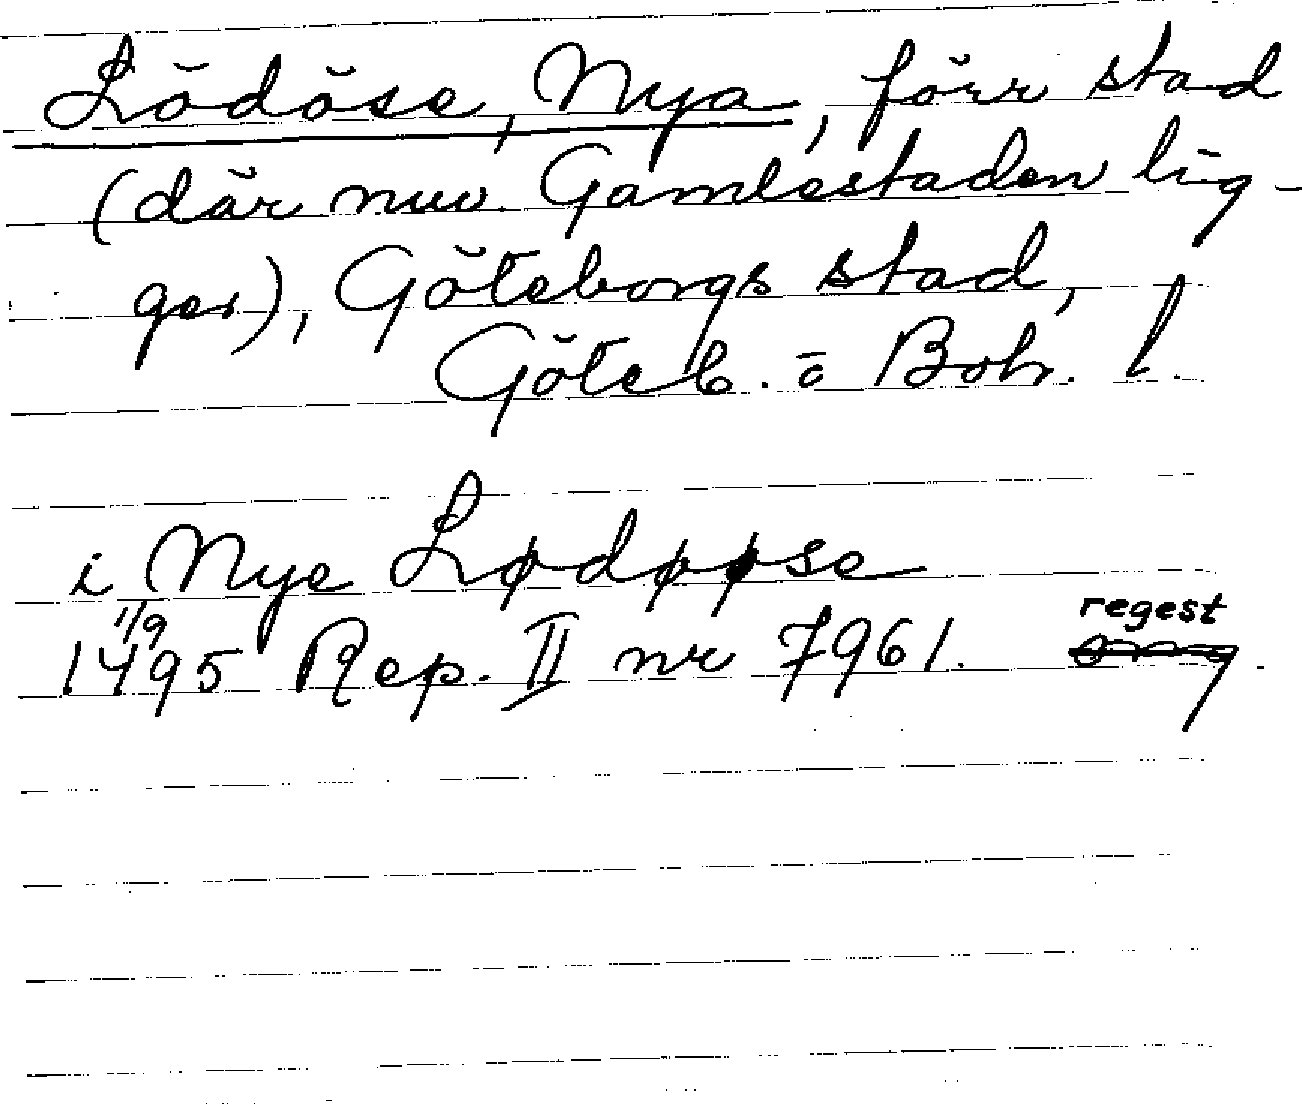 Lödöse, Nya, förr stad
(där nuv. Gamlestaden lig-
ger), Göteborgs stad,
Göteb. o Boh. l.
i Nye Lødøøse
1/9
1495 Rep. II nr 7961. regest